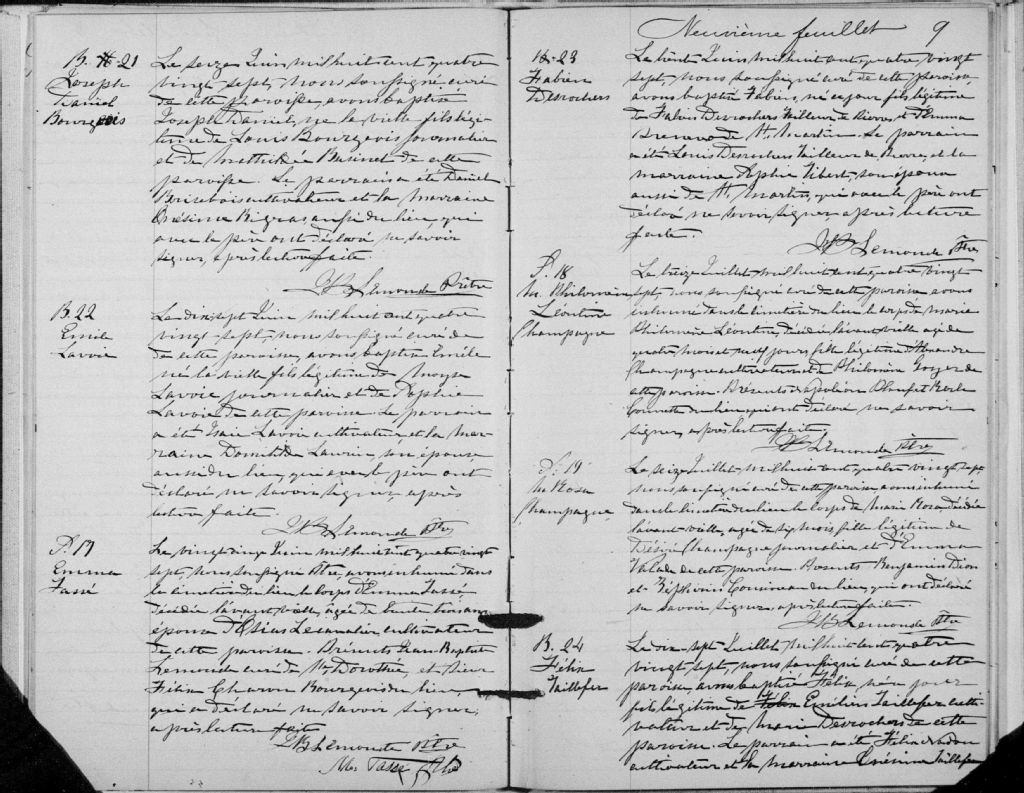 B. 21
Joseph
Daniel
Bourgeois
Le seize Juin mil huit cent quatre
vingt sept, nous soussigné curé
de cette paroisse, avons baptisé
Joseph Daniel, né la veille fils légi-
time de Louis Bourgeois journalier
et de de cette
paroisse. Le parrain a été Daniel
cultivateur et la marraine
Bigras aussi du lieu, qui
avec le père ont déclaré ne savoir
signer, après lecture faite.
JB Lemonde Prêtre
B. 22
Emile
Lavoie
Le dix sept Juin mil huit cent quatre
vingt sept, nous soussigné curé de
de cette paroisse, avons baptisé Emile
né la veille fils légitime de Moyse
Lavoie journalier et de Sophie
Lavoie de cette paroisse. Le parrain
a été Isaie Lavoie cultivateur et la mar-
raine Domitilde Laurin, son épouse
aussi du lieu, qui avec le père ont
déclaré ne savoir signer après
lecture faite.
JB Lemonde Ptre
S. 17
Emma
Tassé
Le vingt cinq Juin mil huit cent quatre vingt
sept, nous soussigné Ptre, avons inhumé dans
le cimetière du lieu le corps d'Emma Tassé
décédée l'avant veille, agée de trente trois ans
épouse d'Osias Lecavalier cultivateur
de cette paroisse. Présents Jean Baptiste
Lemonde curé de Ste Dorothée, et Sieur
Félix Charon Bourgeois du lieu,
qui a déclaré ne savoir signer,
après lecture faite
JB Lemonde Ptre
Tassé Ptre
Neuvième feuillet 9
B. 23
Fabien
Desrochers
Le trente Juin mil huit cent quatre vingt
sept, nous soussigné curé de cette paroisse,
avons baptisé Fabien, né ce jour fils légitime
de Fabien Desrochers tailleur de pierres et d'Emma
de St. Martin. Le parrain
a été Louis Desrochers tailleur de pierre, et la
marraine Sophie Hibert, son épouse
aussi de St. Martin, qui avec le père ont
déclaré ne savoir signer, après lecture
faite.
JB Lemonde Ptre
S. 18
M. Philomène
Léontine
Champagne
Le treize Juillet mil huit cent quatre vingt
sept, nous soussigné curé de cette paroisse avons
inhumé dans le cimetière du lieu le corps de Marie
Philomène Léontine, décédée l'avant veille agée de
quatre mois et neuf jours fille légitime d'Alexandre
Champagne cultivateur et de Philomène Goyer de
cette paroisse. Présents Napoléon et
du lieu qui ont déclaré ne savoir
signer, après lecture faite.
JB Lemonde Ptre
S. 19
M. Rosa
Champagne
Le seize Juillet mil huit cent quatre vingt sept
nous soussigné curé de cette paroisse avons inhumé
dans le cimetière du lieu le corps de Marie Rosa décédée
l'avant veille, agée de six mois fille légitime de
Désiré Champagne journalier et d'Emma
Valade de cette paroisse. Présents Benjamin Dion
et Cousineau du lieu, qui ont déclaré
ne savoir signer, après lecture faite.
JB Lemonde Ptre
B. 24
Félix
Taillefer
Le dix sept Juillet mil huit cent quatre
vingt sept, nous soussigné curé de cette
paroisse, avons baptisé Félix, né ce jour
fils légitime de Emilien Taillefer culti-
vateur et de Marie Desrochers de cette
paroisse. Le parrain a été Félix Nadon
cultivateur et la marraine Taillefer